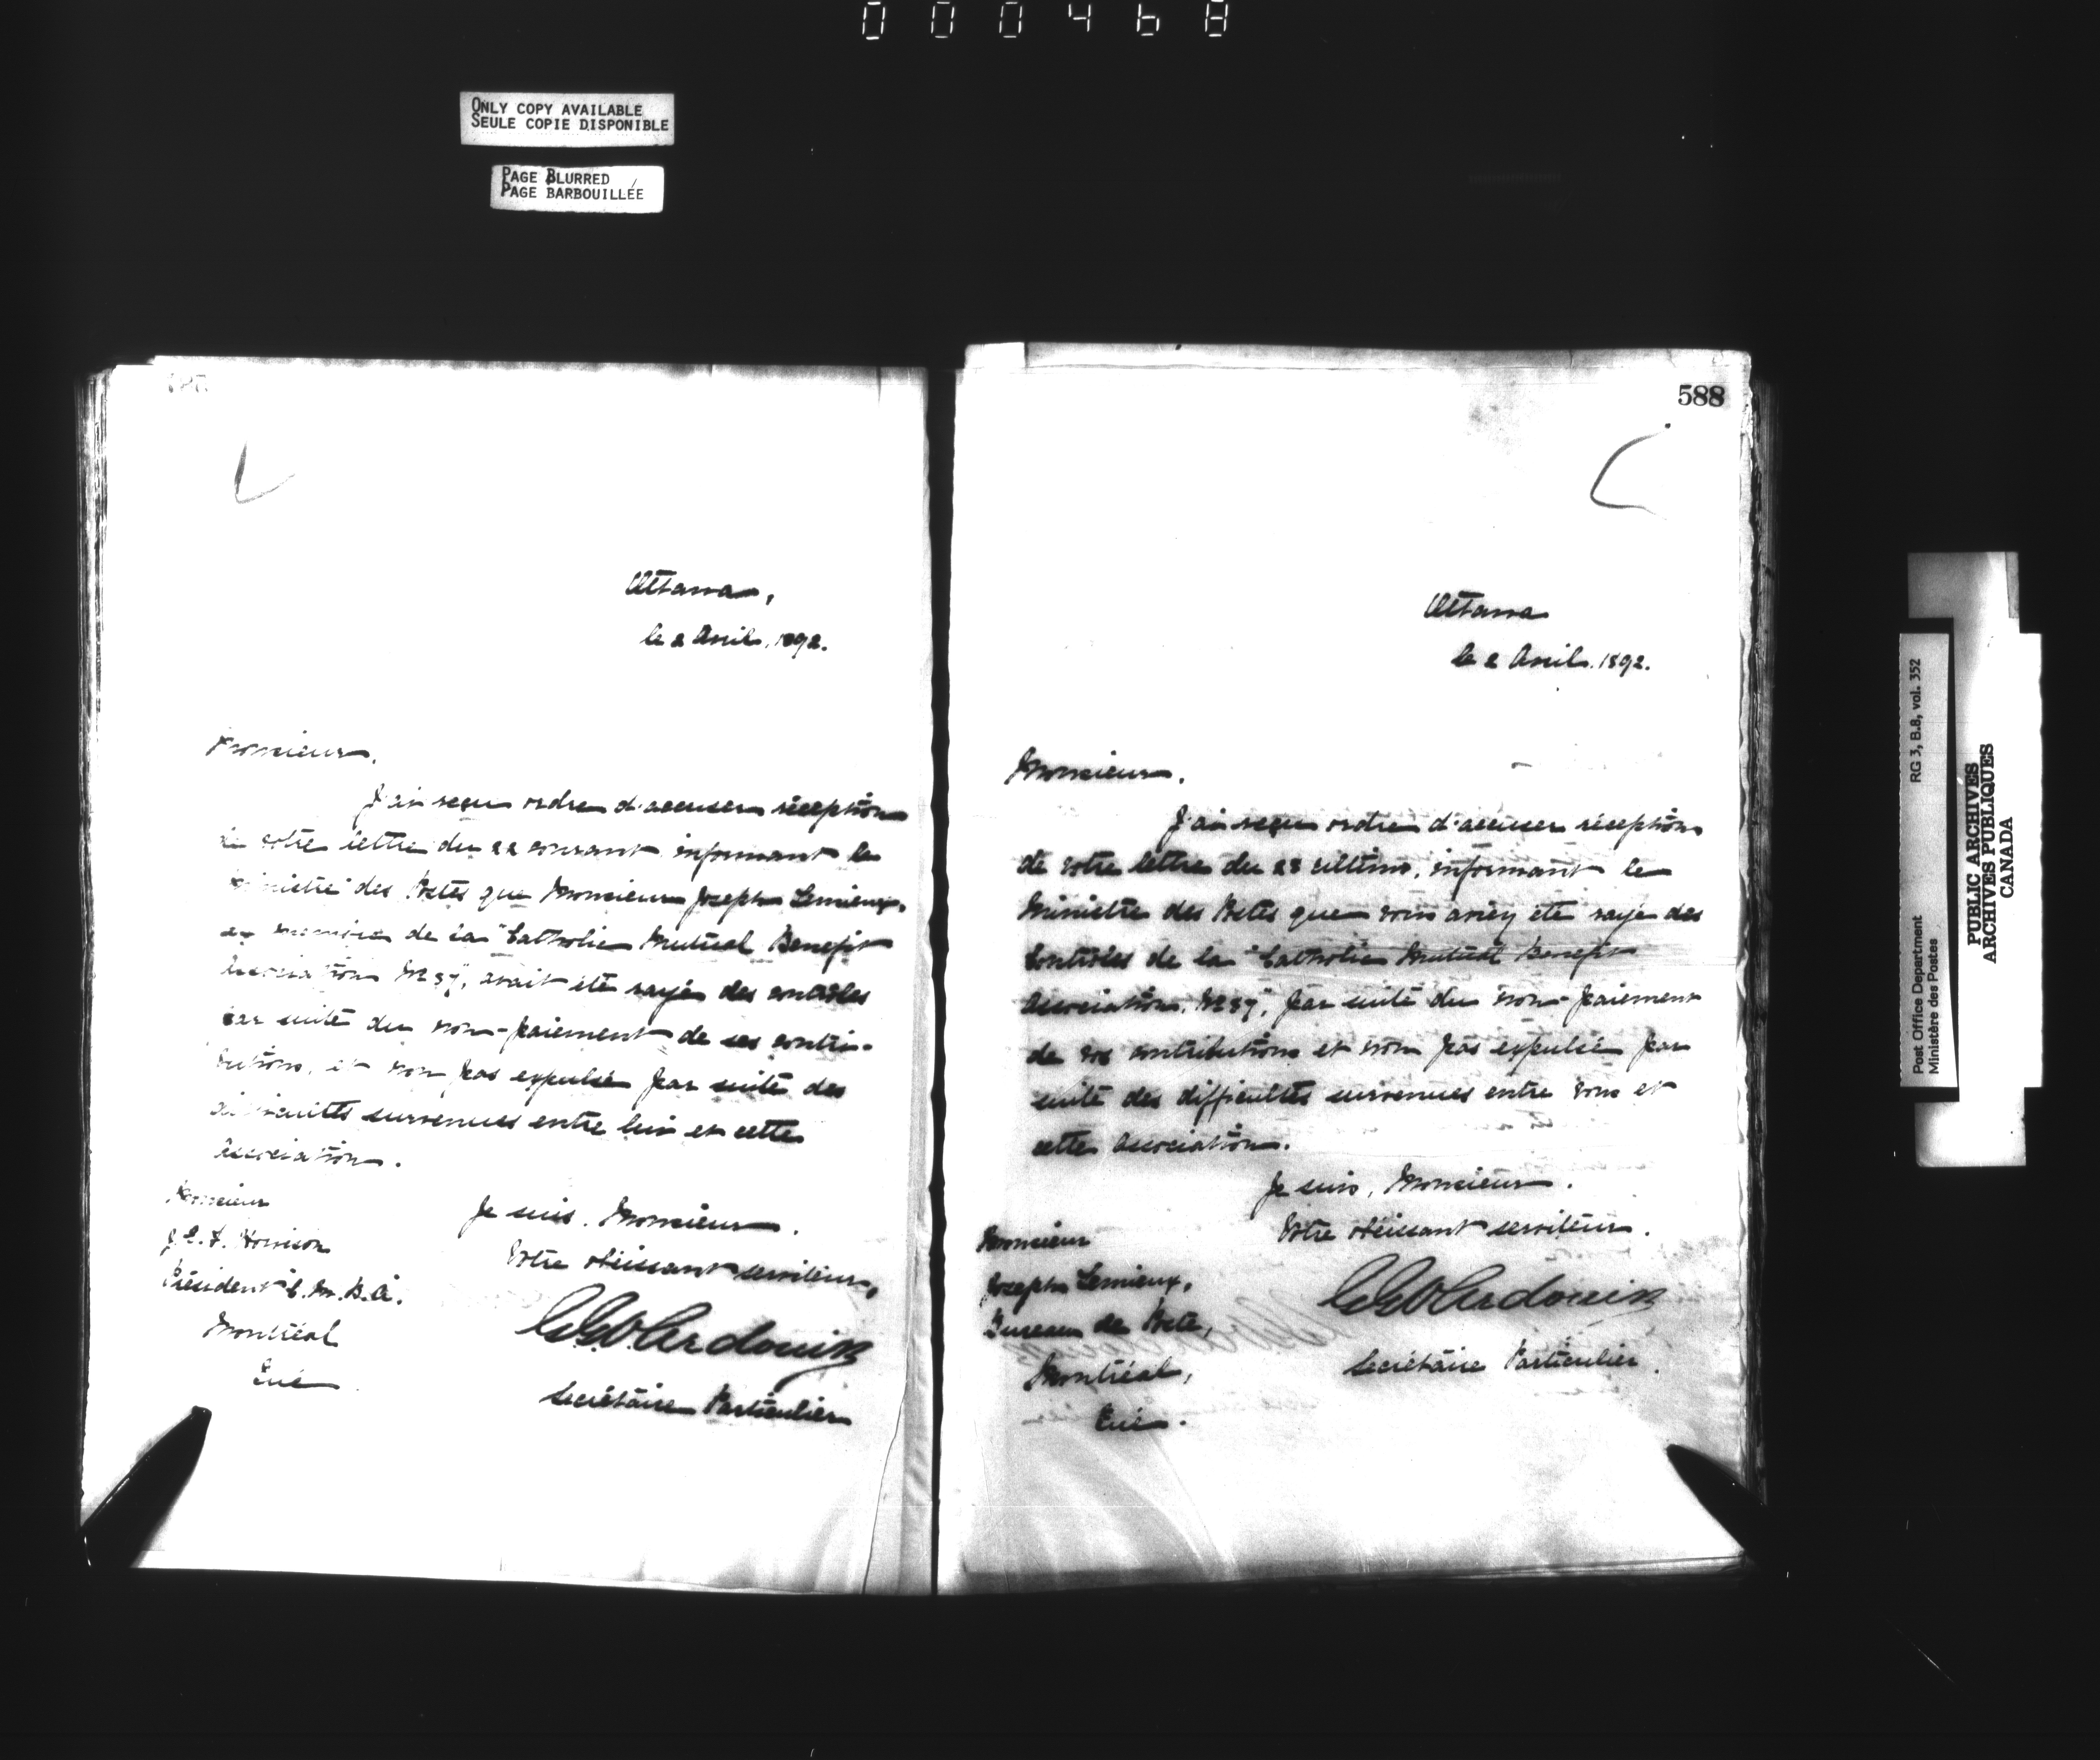 000468
ONLY COPY AVAILABLE
SEULE COPIE DISPONIBLE
PAGE BLURRED
PAGE BARBOUILLÉE
587
Ottawa,
le 2 Avril, 1892.
Monsieur,
J'ai reçu ordre d'accuser réception
de votre lettre du 22 courant informant le
Ministre des Postes que Monsieur Joseph Lemieux,
ex membre de la "Catholic Mutual Benefit
Association No 37", avait été rayé des contrôles
par suite du non-paiement de ses contri-
butions, et non pas expulsé par suite des
difficultés survenues entre lui et cette
Association.
Je suis, Monsieur,
Votre obéissant serviteur,
Secrétaire Particulier
Monsieur
J.E.H. Howison
Président C.M.B.A.
Montréal
Qué
588
Ottawa
le 2 Avril. 1892.
Monsieur,
J'ai reçu ordre d'accuser réception
de votre lettre du 28 ultimo, informant le
Ministre des Postes que vous aviez été rayé des
Contrôles de la "Catholic Mutual Benefit
Association, No 37", par suite du non-paiement
de vos contributions et non pas expulsé par
suite des difficultés survenues entre vous et
cette Association.
Je suis, Monsieur,
Votre obéissant serviteur.
Secrétaire Particulier.
Monsieur
Joseph Lemieux,
Bureau de Poste,
Montréal,
Qué.
Post Office Department RG 3, B.8, vol. 352
Ministère des Postes
PUBLIC ARCHIVES
ARCHIVES PUBLIQUES
CANADA